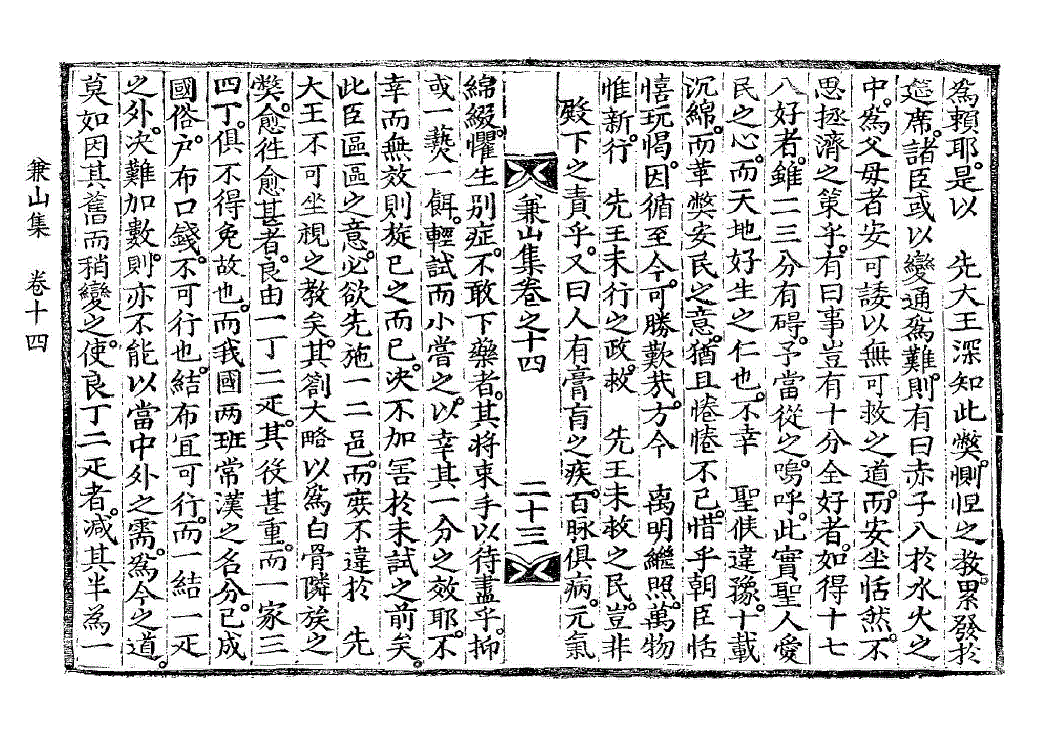 爲賴耶。是以　先大王深知此弊。惻怛之敎。累發於
筵席。諸臣或以變通爲難。則有曰赤子入於水火之
中。爲父母者安可諉以無可救之道。而安坐恬然。不
思拯濟之策乎。有曰事豈有十分全好者。如得十七
八好者。雖二三分有碍。予當從之。嗚呼。此實聖人愛
民之心。而天地好生之仁也。不幸　聖候違豫。十載
沉綿。而革弊安民之意。猶且惓惓不已。惜乎朝臣恬
憘玩愒。因循至今。可勝歎㢤。方今　离明繼照。萬物
惟新。行　先王未行之政。救　先王未救之民。豈非
殿下之責乎。又曰人有膏肓之疾。百脉俱病。元氣
兼山集卷之十四　二十三
綿綴。懼生別症。不敢下藥者。其將束手以待盡乎。抑
或一爇一餌。輕試而小嘗之。以幸其一分之效耶。不
幸而無效則旋已之而已。决不加害於未試之前矣。
此臣區區之意。必欲先施一二邑。而庶不違於　先
大王不可坐視之敎矣。其箚大略以爲白骨隣族之
弊。愈徃愈甚者。良由一丁二疋。其役甚重。而一家三
四丁。俱不得免故也。而我國兩班常漢之名分。已成
國俗。戶布口錢。不可行也。結布宜可行。而一結一疋
之外。决難加數。則亦不能以當中外之需。爲今之道。
莫如因其舊而稍變之。使良丁二疋者。减其半爲一
兼山集　卷十四